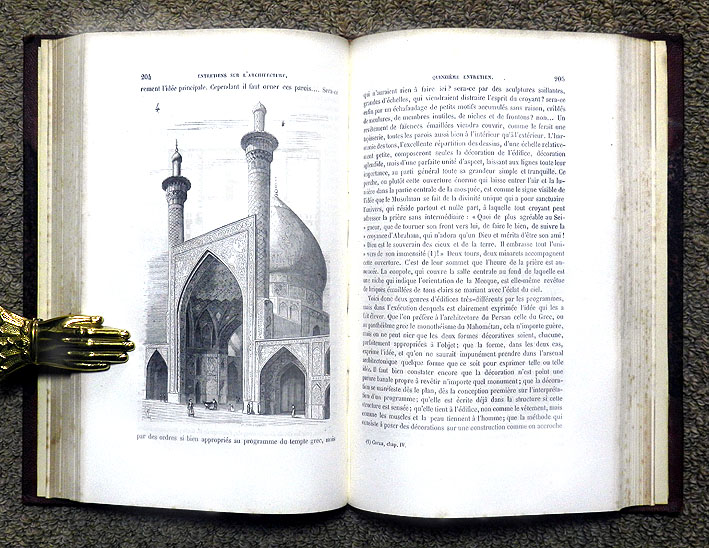 204 ENTRETIENS SUR L'ARCHITECTURE,
rement l'idée principale. Cependant il faut orner ces parois.... Sera-ce
par des ordres si bien appropriés au programme du temple grec, mais
QUINZIÈME ENTRETIEN. 205
qui n'auraient rien à faire ici? sera-ce par des sculptures saillantes,
grandes d'échelles, qui viendraient distraire l'esprit du croyant? sera-ce
enfin par un échafaudage de petits motifs accumulés sans raison, criblés
de moulures, de membres inutiles, de niches et de frontons? non... Un
revêtement de faïences émaillées viendra couvrir, comme le ferait une
tapisserie, toutes les parois aussi bien à l'intérieur qu'à l'extérieur. L'har-
monie des tons, l'excellente répartition des dessins, d'une échelle relative-
ment petite, composeront seules la décoration de l'édifice, décoration
splendide, mais d'une parfaite unité d'aspect, laissant aux lignes toute leur
importance, au parti général toute sa grandeur simple et tranquille. Ce
porche, ou plutôt cette ouverture énorme qui laisse entrer l'air et la lu-
mière dans la partie centrale de la mosquée, est comme le signe visible de
l'idée que le Musulman se fait de la divinité unique qui a pour sanctuaire
l'univers, qui réside partout et nulle part, à laquelle tout croyant peut
adresser la prière sans intermédiaire: « Quoi de plus agréable au Sei-
« gneur, que de tourner son front vers lui, de faire le bien, de suivre la
« croyance d'Abraham, qui n'adora qu'un Dieu et mérita d'être son ami!
« Dieu est le souverain des cieux et de la terre. Il embrasse tout l'uni-
« vers de son immensité (1)! » Deux tours, deux minarets accompagnent
cette ouverture. C'est de leur sommet que l'heure de la prière est an-
noncée. La coupole, qui couvre la salle centrale au fond de laquelle est
une niche qui indique l'orientation de la Mecque, est elle-même revêtue
de briques émaillées de tons clairs se mariant avec l'éclat du ciel.
Voici donc deux genres d'édifices très-différents par les programmes,
mais dans l'exécution desquels est clairement exprimée l'idée qui les a
fait élever. Que l'on préfère à l'architecture du Persan celle du Grec, ou
au panthéisme grec le monothéisme du Mahométan, cela n'importe guère,
mais on ne peut nier que les deux formes décoratives soient, chacune,
parfaitement appropriées à l'objet; que la forme, dans les deux cas,
exprime l'idée, et qu'on ne saurait impunément prendre dans l'arsenal
architectonique quelque forme que ce soit pour exprimer telle ou telle
idée. Il faut bien constater encore que la décoration n'est point une
parure banale propre à revêtir n'importe quel monument; que la décora-
tion se manifeste dès le plan, dès la conception première sur l'interpréta-
tion d'un programme; qu'elle est écrite déjà dans la structure si cette
structure est sensée; qu'elle tient à l'édifice, non comme le vêtement, mais
comme les muscles et la peau tiennent à l'homme; que la méthode qui
consiste à poser des décorations sur une construction comme on accroche
(1) Coran, chap. IV.